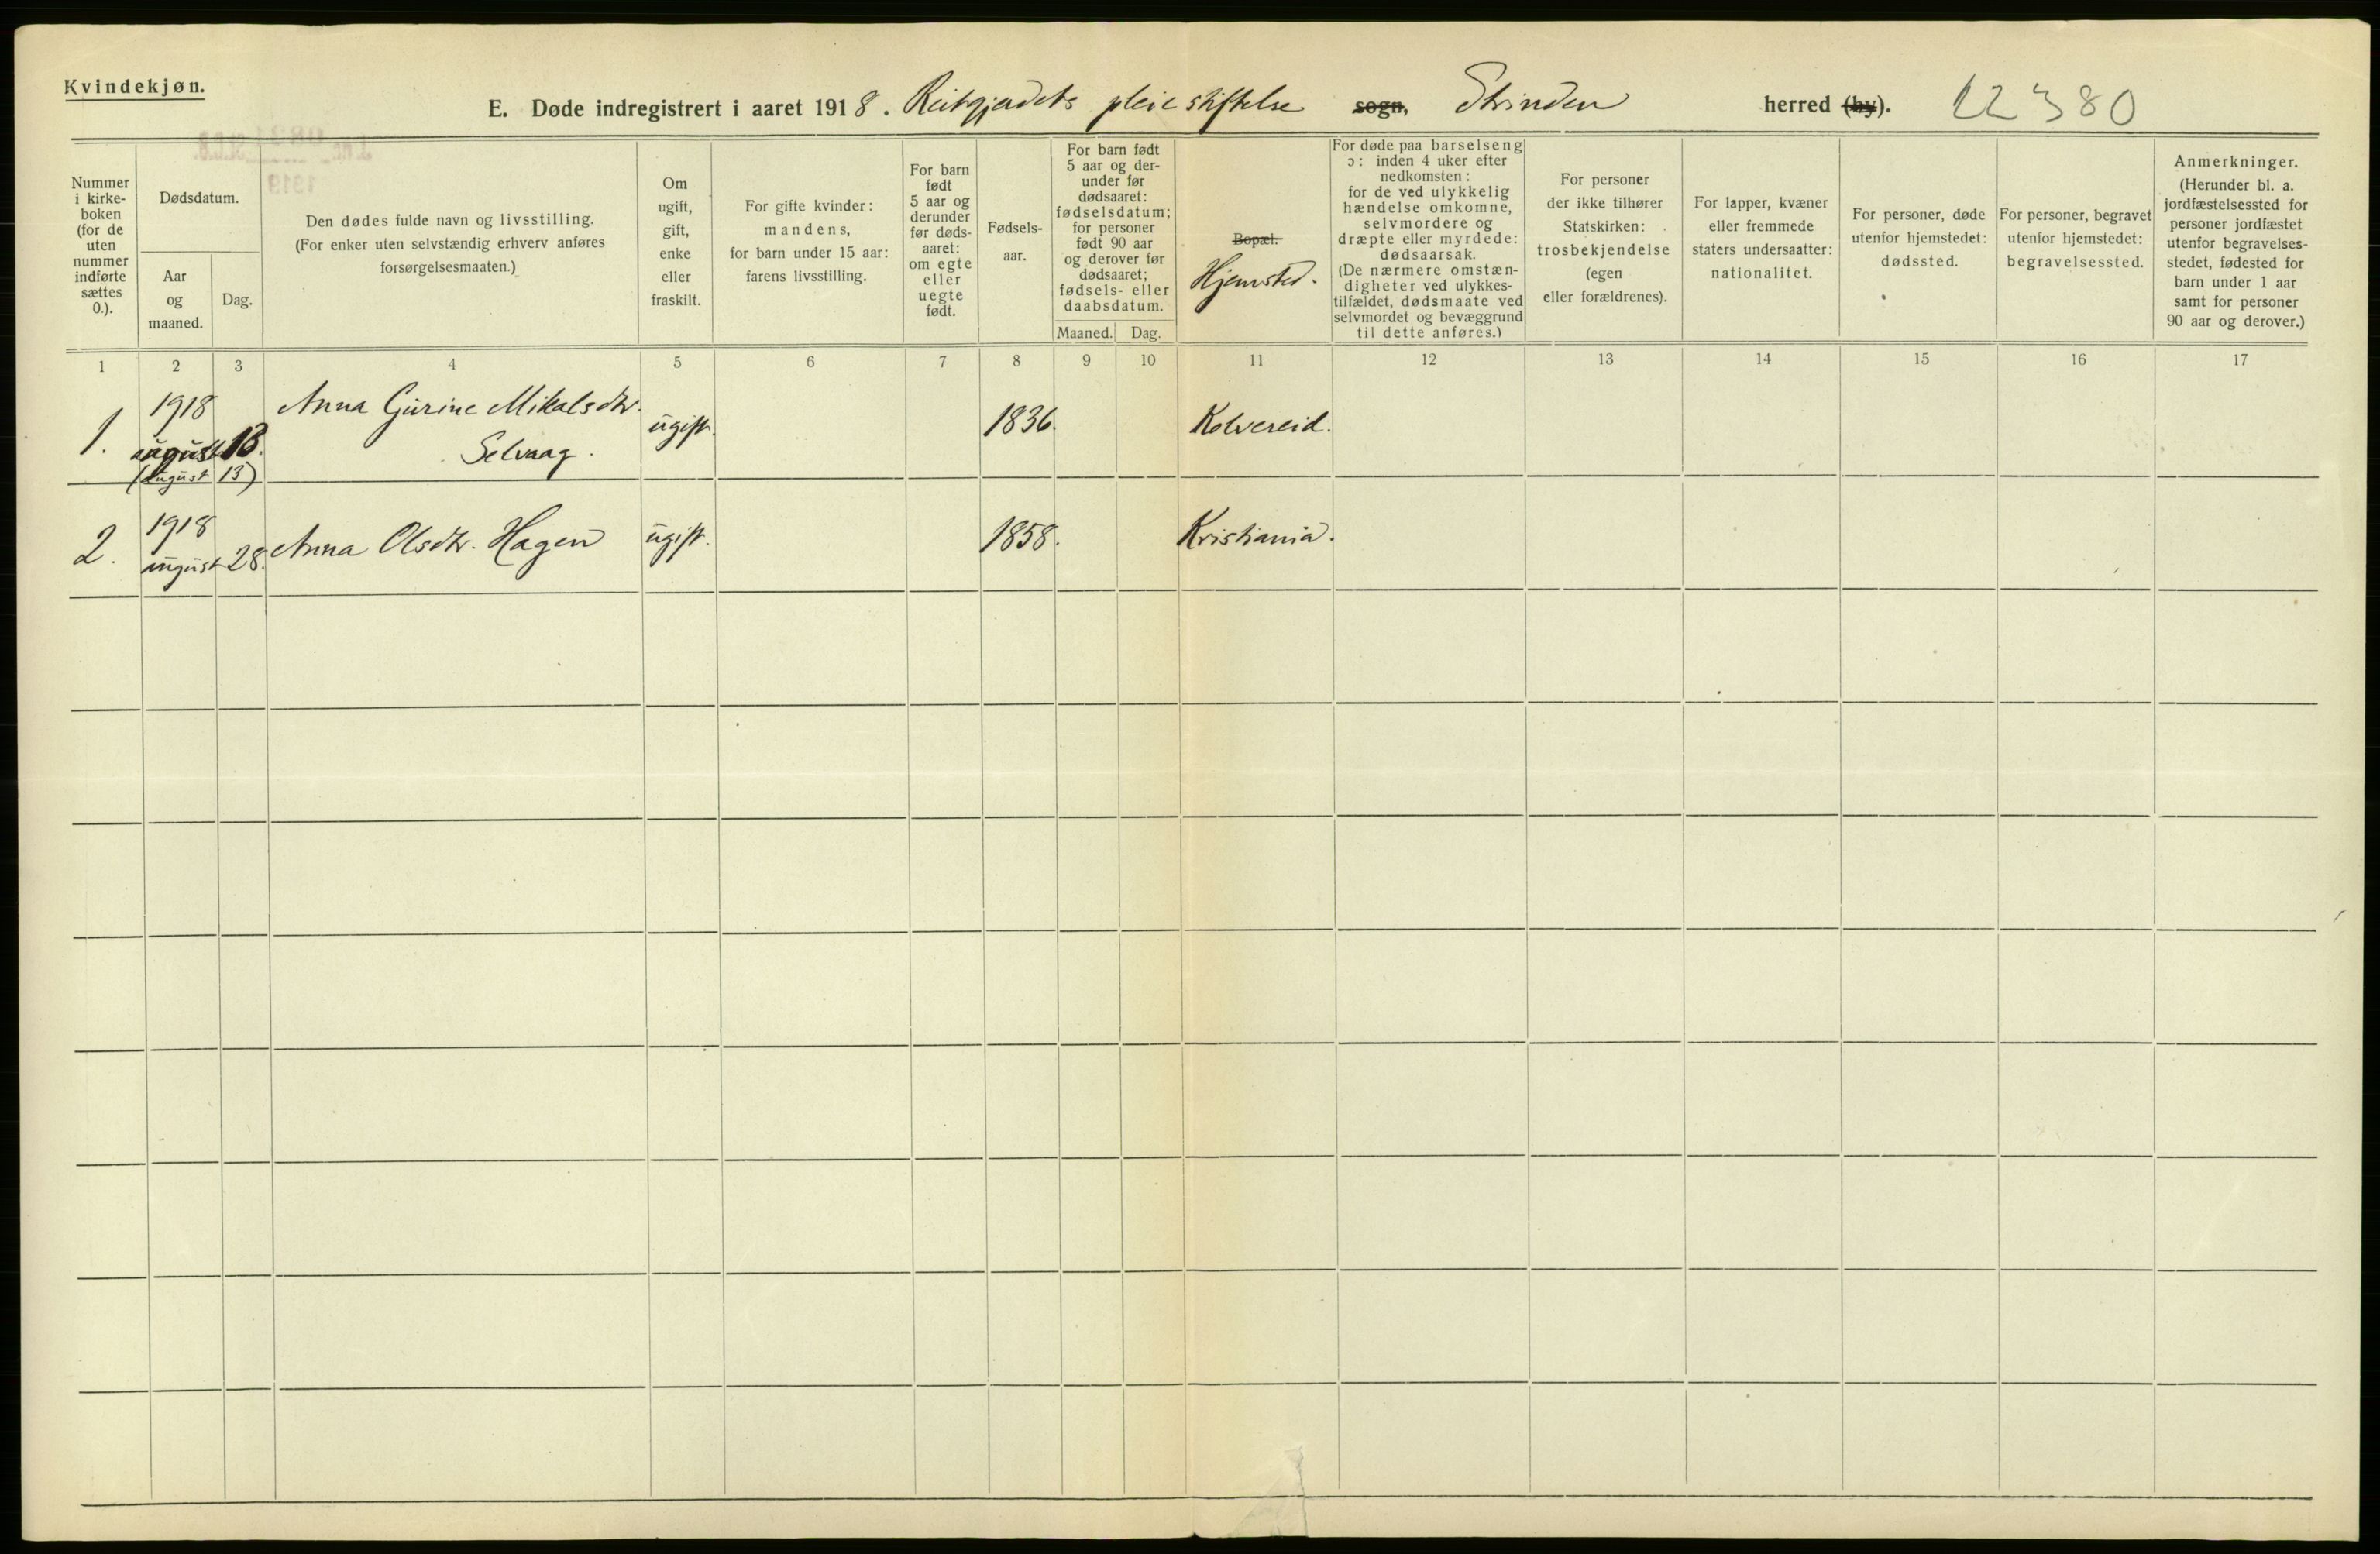 Kvindekjøn.
E. Døde indregistrert i aaret 1918. Reitgjerdets pleiestiftelse sogn, Strinden herred (by). 12380
Nummer
i kirke-
boken
(for de
uten
nummer
indførte
sættes
0.).
Dødsdatum.
Aar
og
maaned.
Dag.
Den dødes fulde navn og livsstilling.
(For enker uten selvstændig erhverv anføres
forsørgelsesmaaten.)
Om
ugift,
gift,
enke
eller
fraskilt.
For gifte kvinder:
mandens,
for barn under 15 aar:
farens livsstilling.
For barn
født
5 aar og
derunder
før døds-
aaret:
om egte
eller
uegte
født.
Fødsels-
aar.
For barn født
5 aar og der-
under før
dødsaaret:
fødselsdatum;
for personer
født 90 aar
og derover før
dødsaaret;
fødsels- eller
daabsdatum.
Maaned. Dag.
Bopæl.
Hjemsted.
For døde paa barselseng
ɔ: inden 4 uker efter
nedkomsten:
for de ved ulykkelig
hændelse omkomne,
selvmordere og
dræpte eller myrdede:
dødsaarsak.
(De nærmere omstæn-
digheter ved ulykkes-
tilfældet, dødsmaate ved
selvmordet og bevæggrund
til dette anføres.)
For personer
der ikke tilhører
Statskirken:
trosbekjendelse
(egen
eller forældrenes).
For lapper, kvæner
eller fremmede
staters undersaatter:
nationalitet.
For personer, døde
utenfor hjemstedet:
dødssted.
For personer, begravet
utenfor hjemstedet:
begravelsessted.
Anmerkninger.
(Herunder bl. a.
jordfæstelsessted for
personer jordfæstet
utenfor begravelses-
stedet, fødested for
barn under 1 aar
samt for personer
90 aar og derover.)
1 2 3 4 5 6 7 8 9 10 11 12 13 14 15 16 17
1. 1918 august 13. Anna Gurine Mikalsdtr. ugift. 1836. Kolvereid.
Selvaag.
(august 13)
2. 1918 august 28. Anna Olsdtr. Hagen ugift. 1858. Kristiania.